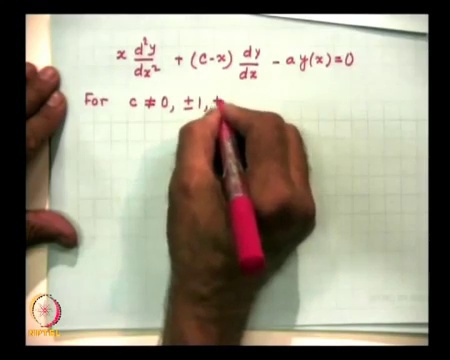 x d²y/dx² + (c-x) dy/dx - a y(x) = 0
For c ≠ 0, ±1, ±